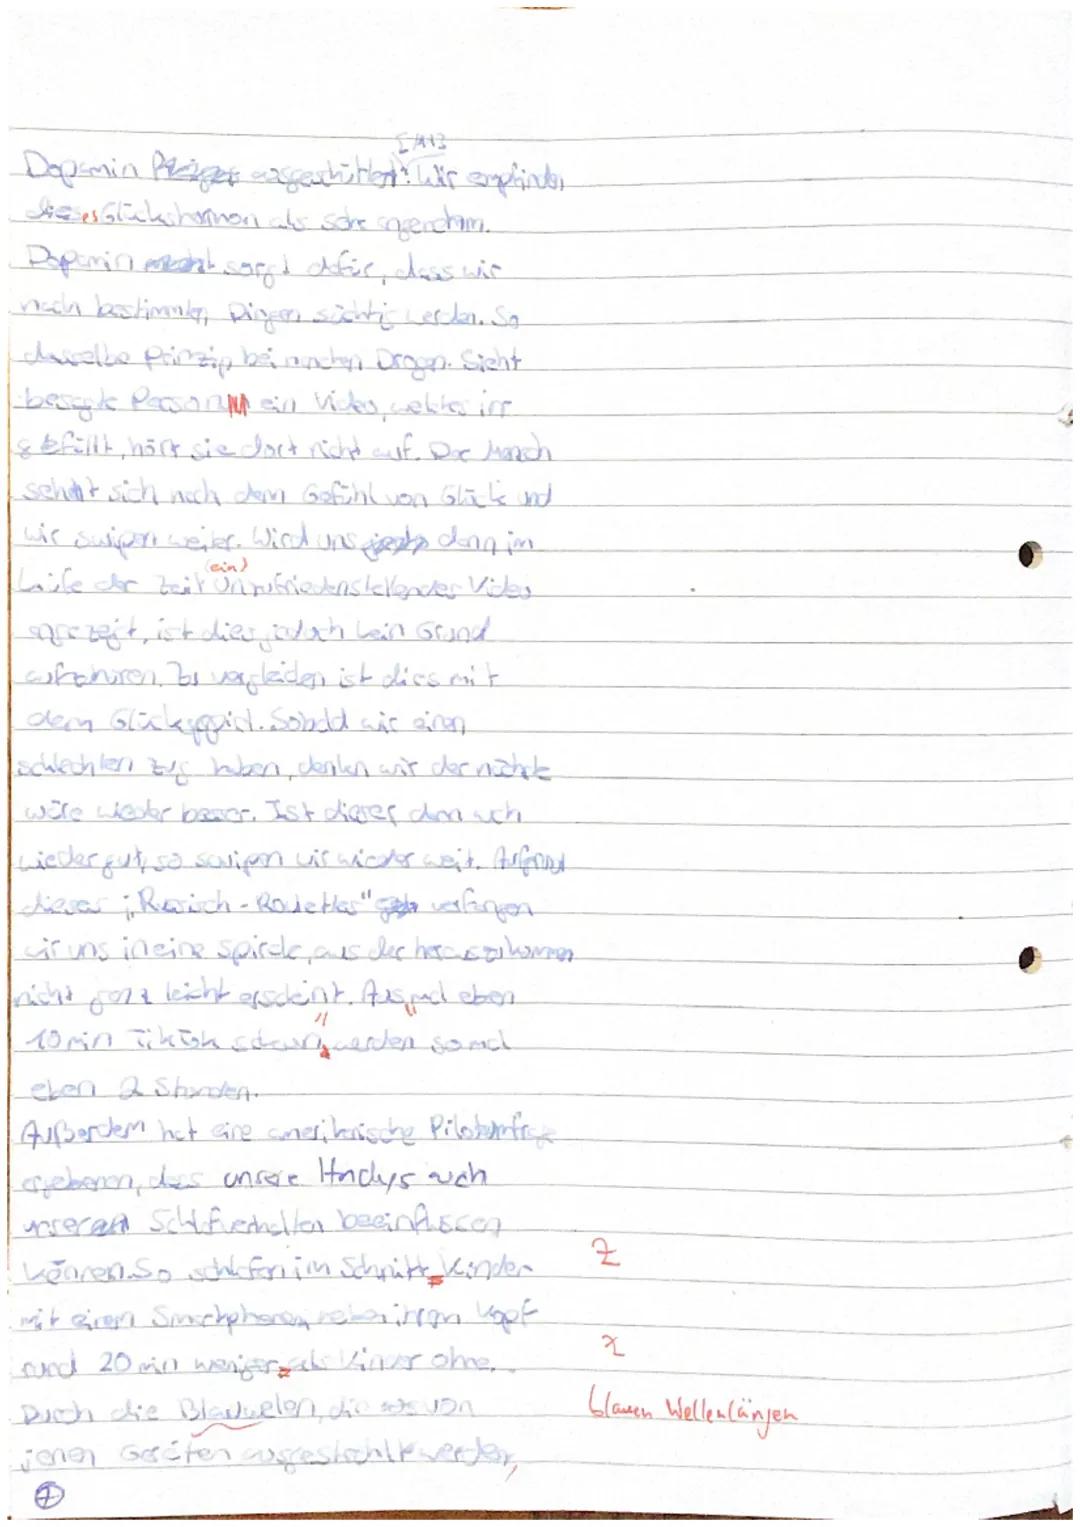 [M13
Dopamin ausgeschüttet. Wir empfinden
dieses Glückshormon als sehr angenehm.
Dopamin sorgt dafür, dass wir
nach bestimmten Dingen süchtig werden. So
dasselbe Prinzip bei manchen Drogen. Sieht
besagte Person ein Video, welches irr
gefällt, hört sie dort nicht auf. Der Mensch
sehnt sich nach dem Gefühl von Glück und
wir swipen weiter. Wird uns dann im
(ein)
Laufe der Zeit Unzufriedenstellendes Video
angezeit, ist dies jedoch kein Grund
aufzuhören. Zu vergleichen ist dies mit
dem Glückspiel. Sobald wir einen
schlechten Zug haben, denken wir der nächste
wäre wieder besser. Ist dieser dann auch
wieder gut, so swipen wir wieder weit. Aufgrund
dieses „Russisch-Roulettes" verfangen
wir uns in eine Spirale, aus der herauszukommen
nicht ganz leicht erscheint. Aus mal eben
10 min TikTok schauen, werden so mal
eben 2 Stunden.
Außerdem hat eine amerikanische Pilotumfrage
ergebenen, dass unsere Handys auch
unseren Schlafverhalten beeinflussen
können. So schlafen im Schnitt Kinder
Z
mit einem Smartphone neben ihrem Kopf
rund 20 min weniger als Kinder ohne.
Z
Durch die Blauwelen, die von
blauen Wellenlängen
jenen Geräten ausgestrahlt werden,
7